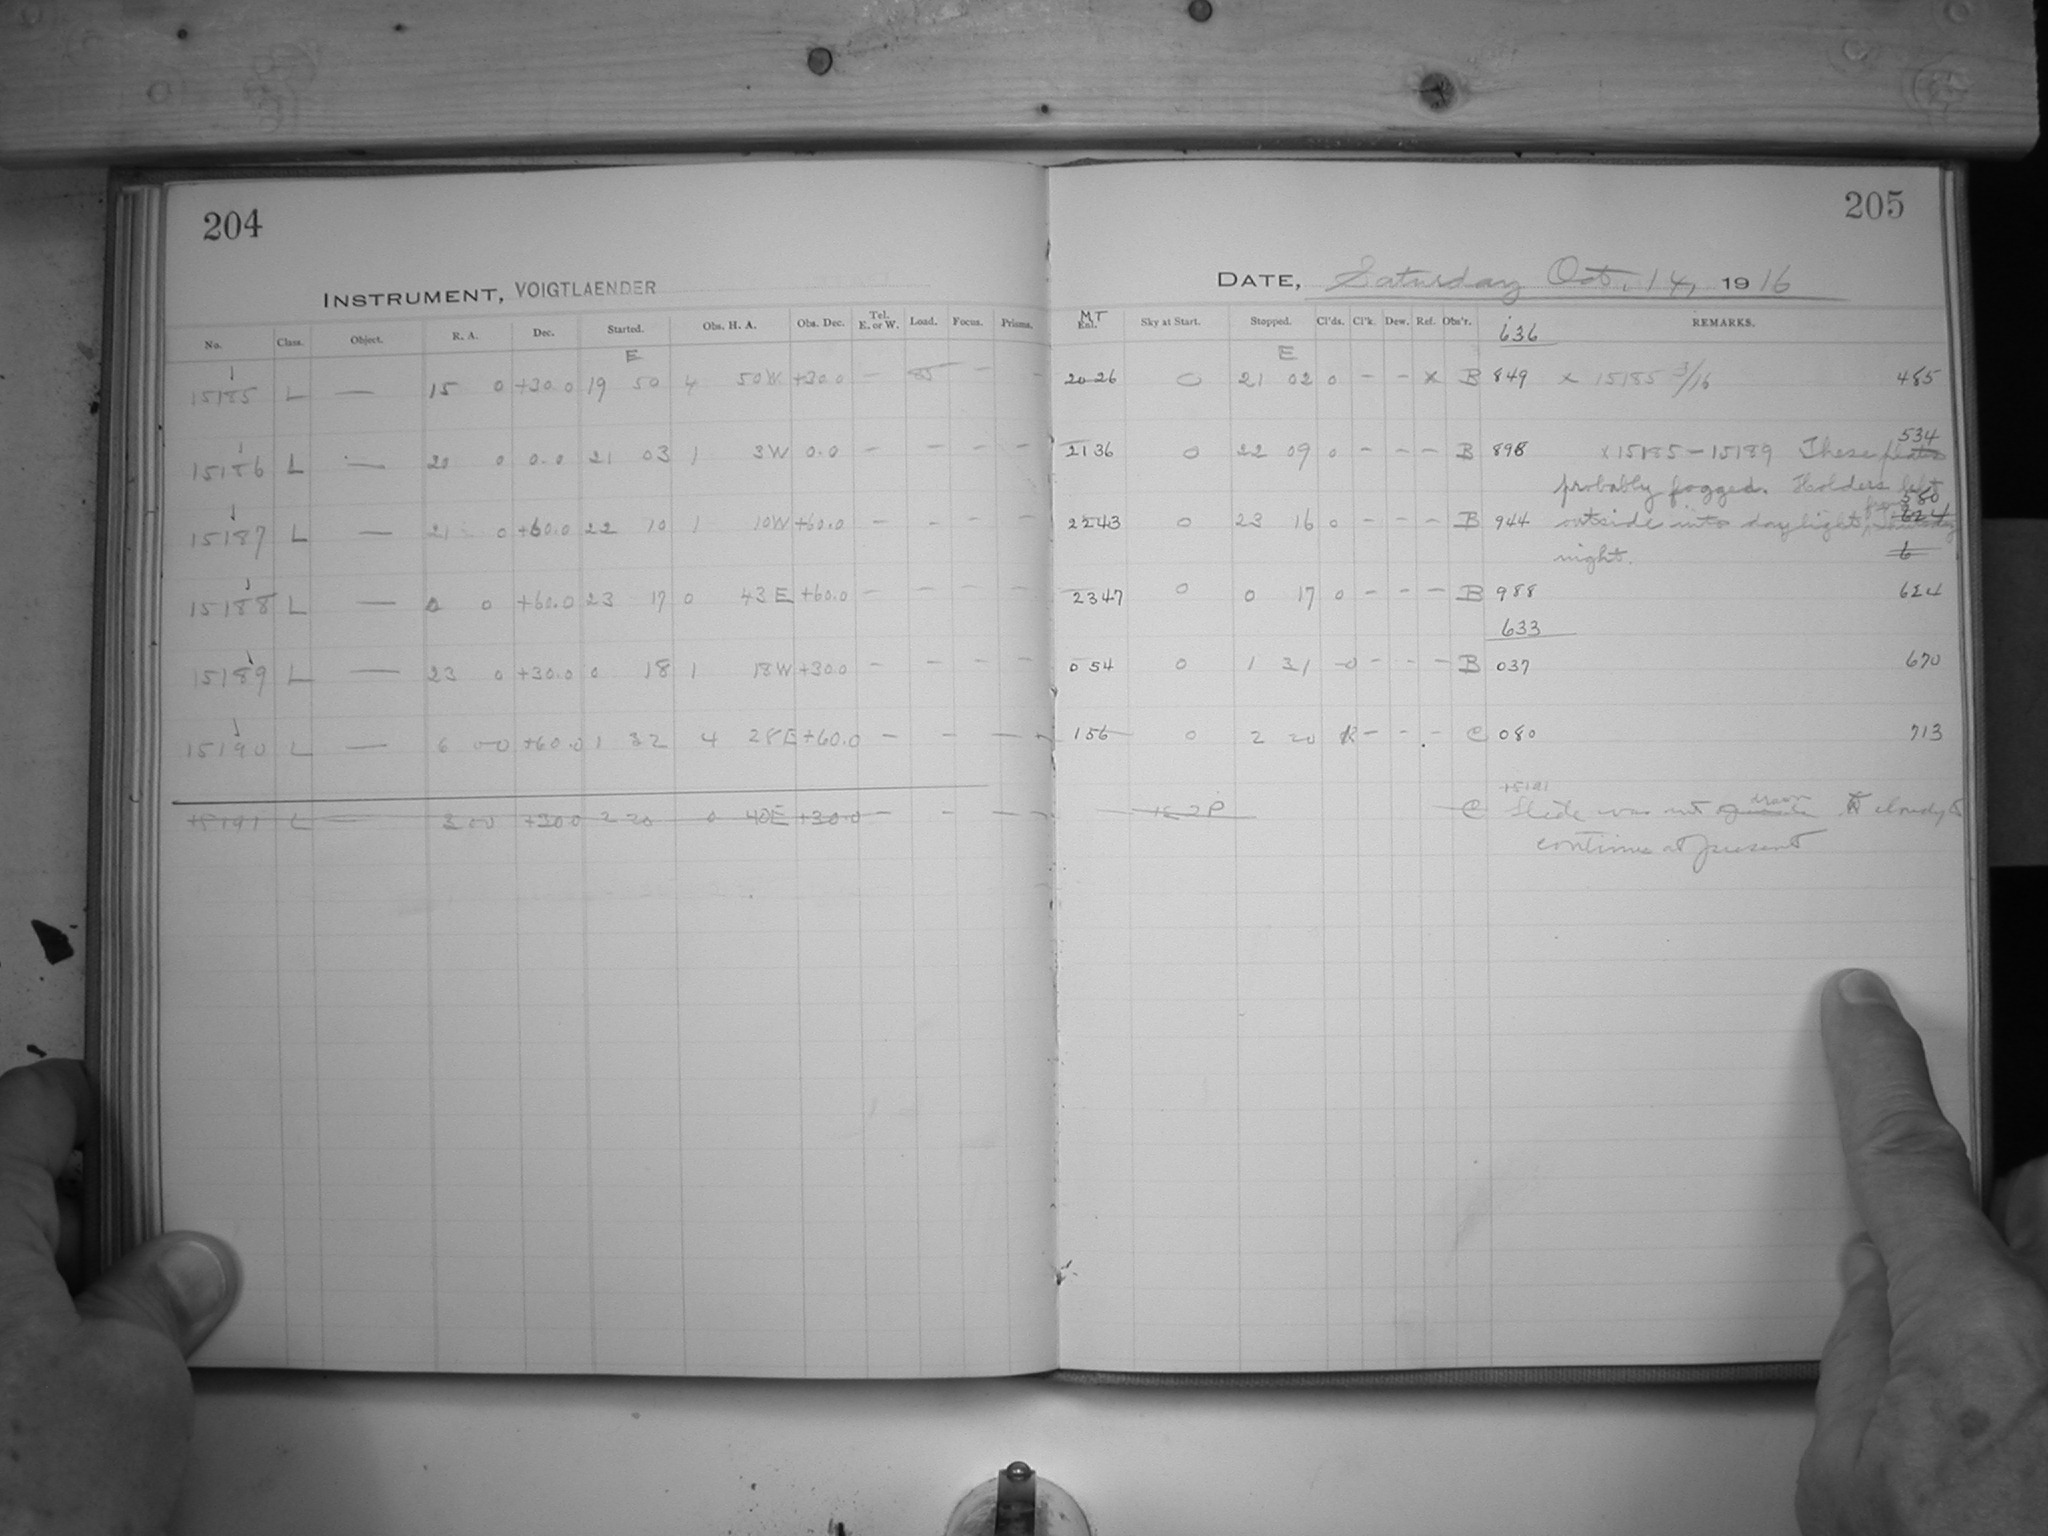 204
INSTRUMENT, VOIGTLAENDER
No. Class. Object. R. A. Dec. Started. Obs. H. A. Obs. Dec. Tel. E. or W. Load. Focus. Prisms.
E
15185 L — 15 0 +30.0 19 50 4 50W +30.0 — 85 - -
15186 L — 20 0 0.0 21 03 1 3W 0.0 — — — —
15187 L — 21 0 +60.0 22 10 1 10W +60.0 — - — —
15188 L — 0 0 +60.0 23 17 0 43E +60.0 — — — —
15189 L — 23 0 +30.0 0 18 1 18W +30.0 — — — —
15190 L — 6 00 +60.0 1 32 4 28E +60.0 — — — —
15191 L — 3 00 +30.0 2 20 0 40E +30.0 — — — —
205
DATE, Saturday Oct. 14, 1916
MT
Enl. Sky at Start. Stopped. Cl'ds. Cl'k. Dew. Ref. Obs'r. 636 REMARKS.
E
2026 0 21 02 0 - - x B 849 x 15185 3/16 485
534
2136 0 22 09 0 - - - B 898 x15185-15189 These plates
probably fogged. Holders left
580
2243 0 23 16 0 - - - B 944 outside into daylight, 624
night. 6
2347 0 0 17 0 - - - B 988 624
633
054 0 1 31 0 - - - B 037 670
156 0 2 20 K - - - C 080 713
15191
C Slide was not drawn cloudy to
continue at present